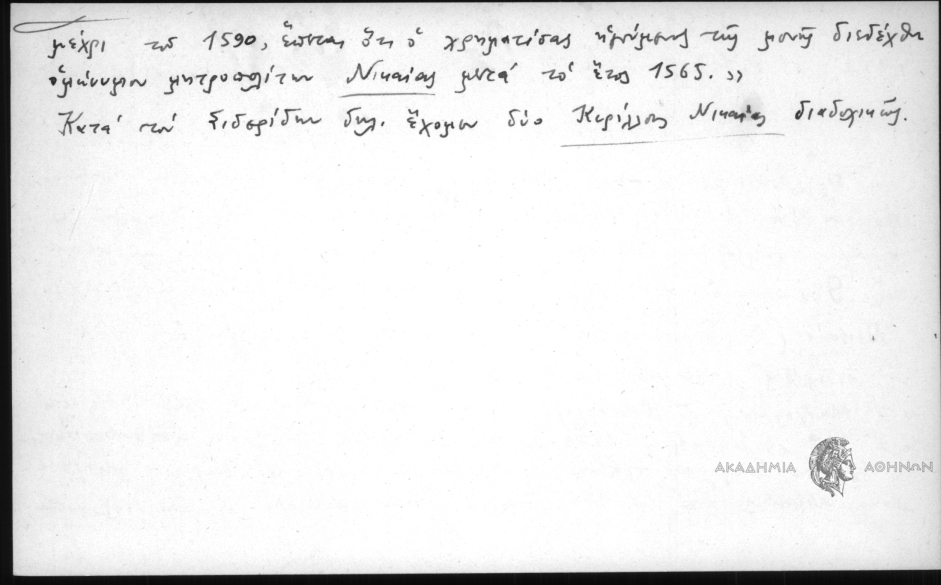 μέχρι τοῦ 1590, ἕπεται ὅτι ὁ χρηματίσας ἡγούμενος τῆς μονῆς διεδέχθη
ὁμώνυμον μητροπολίτην Νικαίας μετὰ τὸ ἔτος 1565. »
Κατὰ τὸν Σιδερίδην δηλ. ἔχομεν δύο Κυρίλλους Νικαίας διαδοχικῶς.
ΑΚΑΔΗΜΙΑ ΑΘΗΝΩΝ